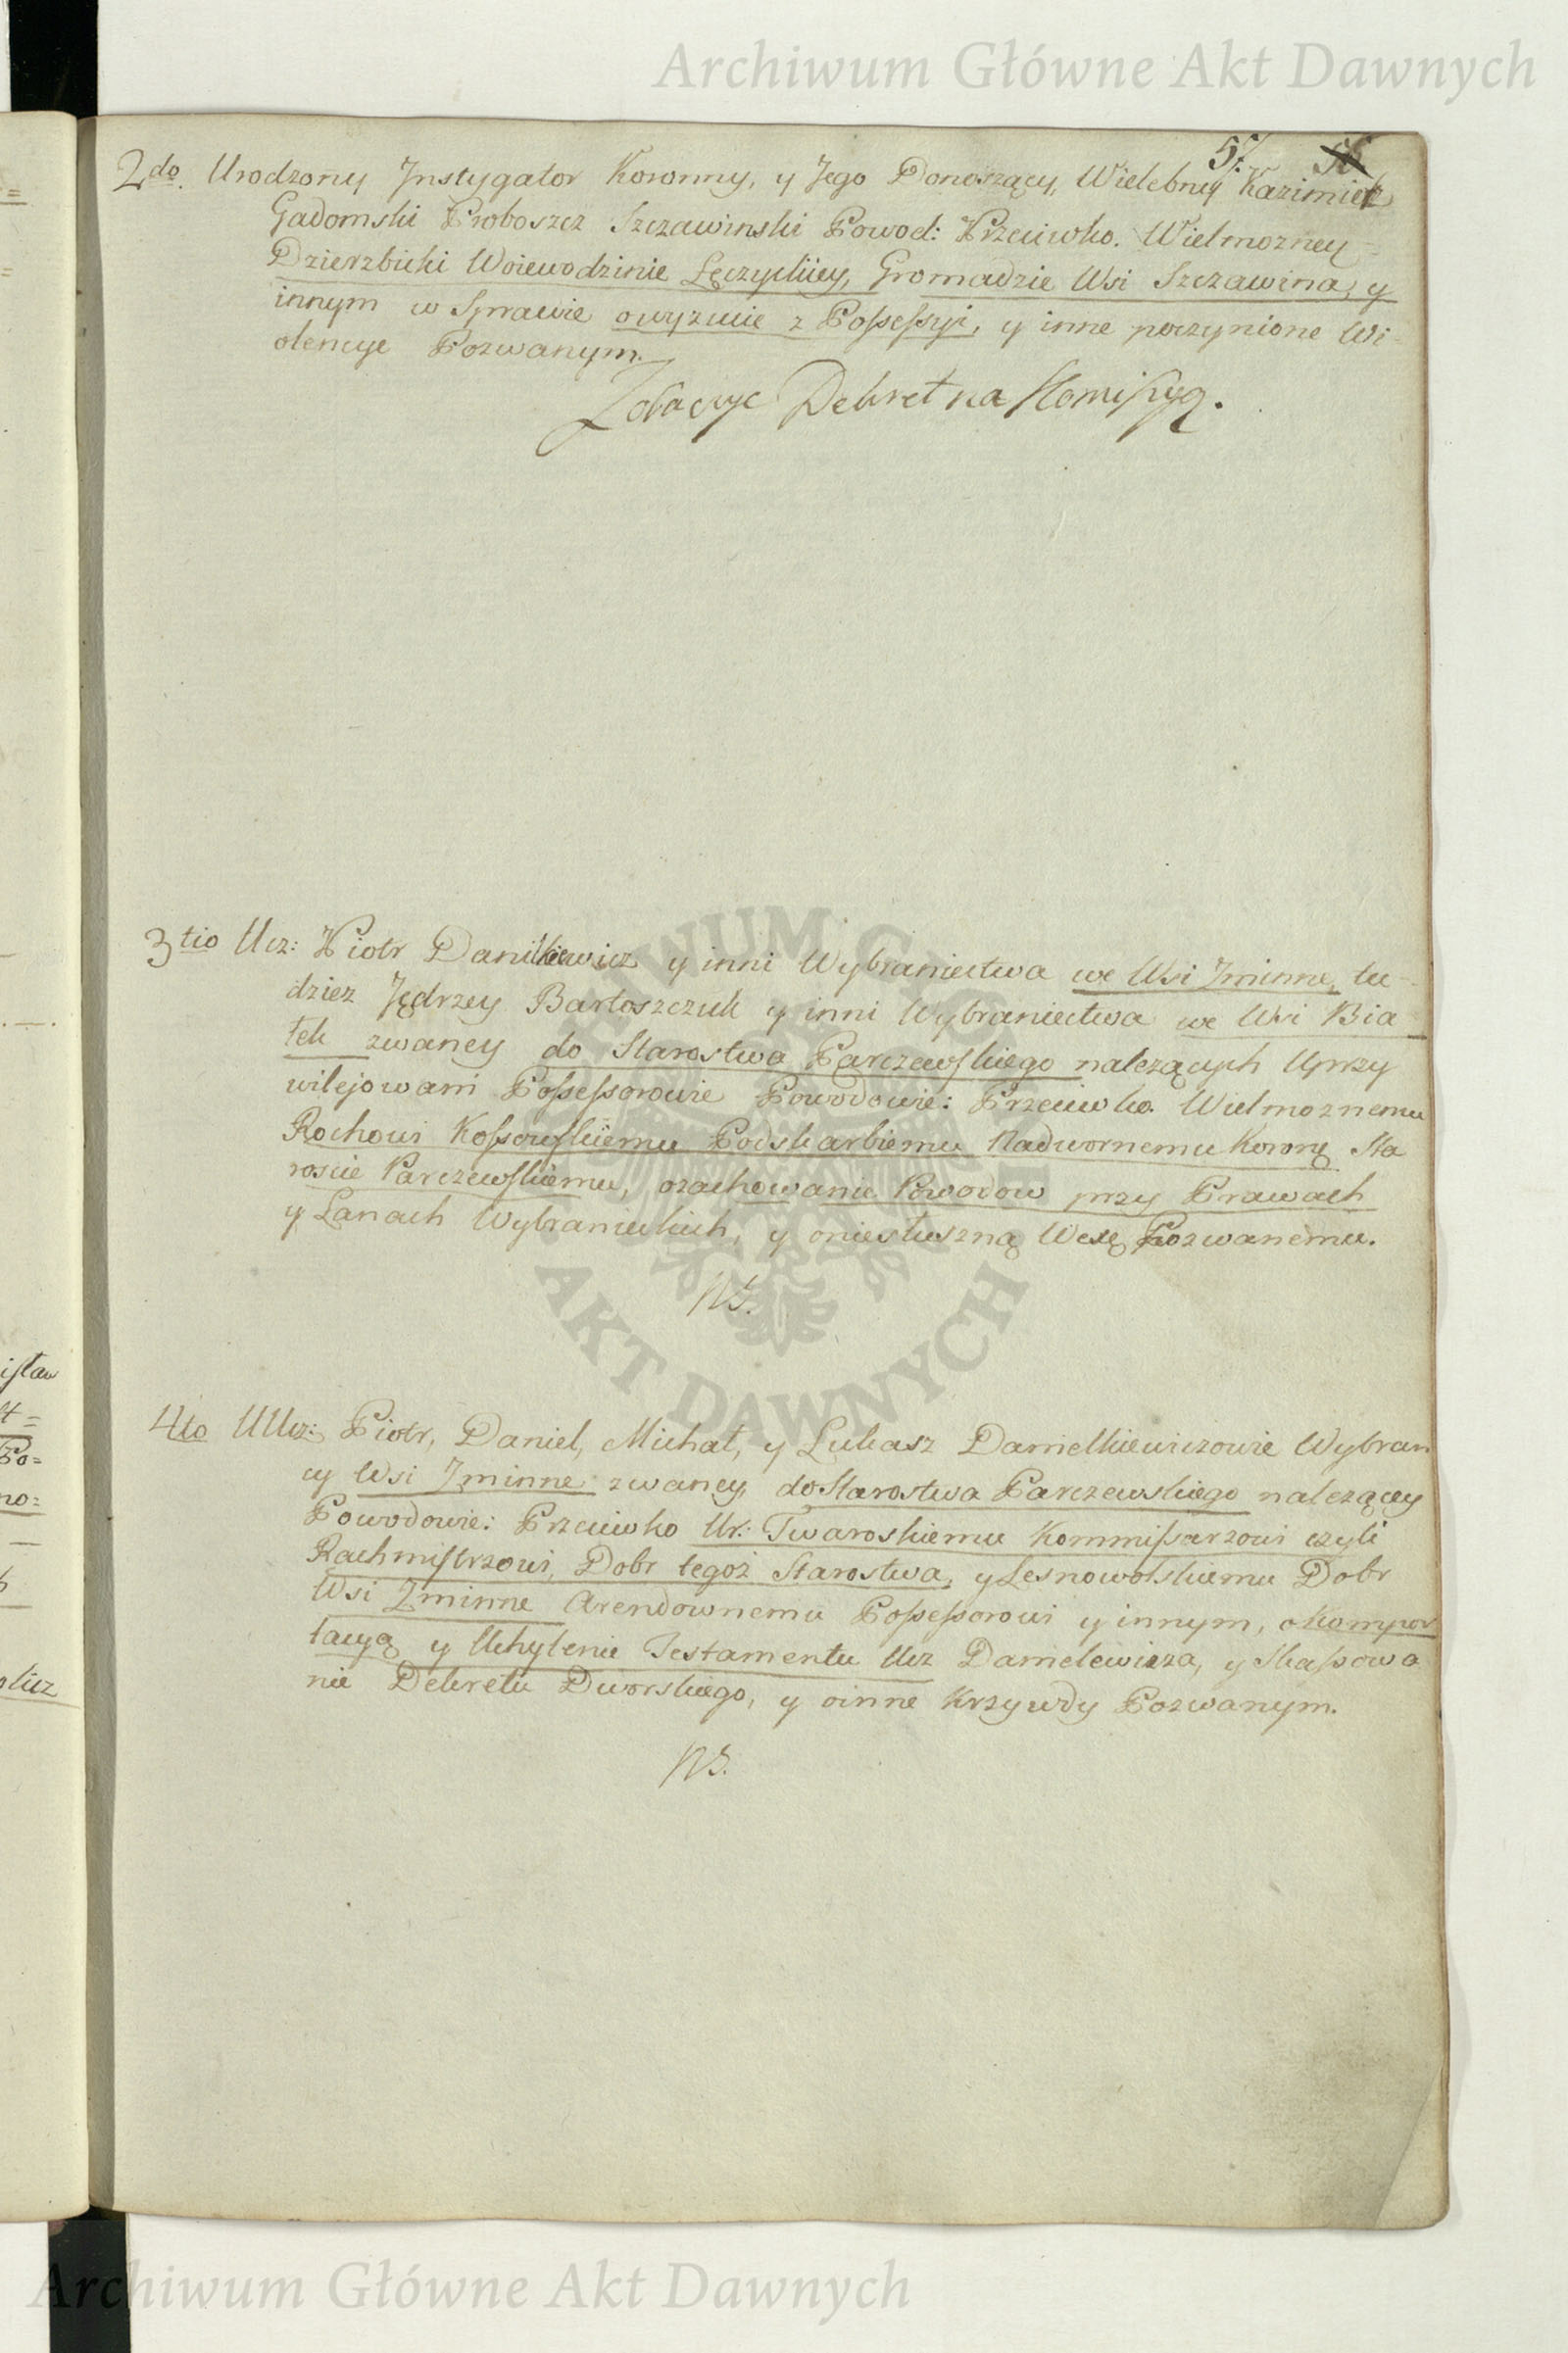 Archiwum Główne Akt Dawnych
57. 56
2do. Urodzony Instygator Koronny, y Jego Donoszący, Wielebny Kazimierz
Gadomski Proboszcz Szczawinski Powod: Przeciwko. Wielmozney =
Dzierzbicki Woiewodzinie Łęczyckiey, Gromadzie Wsi Szczawina, y
innym w Sprawie owyzucie z Possessyi, y inne poczynione Wi-
olencye Pozwanym.
Zobaczyc Dekret na Komissyą.
3tio Ucz: Piotr Danilkiewicz y inni Wybraniectwa we Wsi Zminne, tu-
dziez Jędrzey Bartoszczuk y inni Wybraniectwa we Wsi Bia
łek zwaney do Starostwa Parczewskiego nalezących Uprzy
wilejowani Possessorowie Powodowie: Przeciwko. Wielmoznemu
Rochowi Kossowskiemu Podskarbiemu Nadwornemu Koronę Sta
roscie Parczewskiemu, ozachowanie Powodow przy Prawach
y Łanach Wybranieckich, y oniesłuszną Wexę Pozwanemu.
NS.
4to UUcz: Piotr, Daniel, Michał, y Łukasz Danielkiewiczowie Wybran
cy Wsi Zminne zwaney, do Starostwa Parczewskiego nalezącey
Powodowie: Przeciwko Ur: Twaroskiemu Kommissarzowi czyli
Rachmistrzowi, Dobr tegoż Starostwa, y Lesnowolskiemu Dobr
Wsi Zminne Arendownemu Possessorowi y innym, o Kompor
tacyą y Uchylenie Testamentu Ucz Danielewicza, y Skassowa
nie Dekretu Dworskiego, y oinne Krzywdy Pozwanym.
NS.
isław
Po=
no=
Archiwum Główne Akt Dawnych
ARCHIWUM GŁÓWNE AKT DAWNYCH